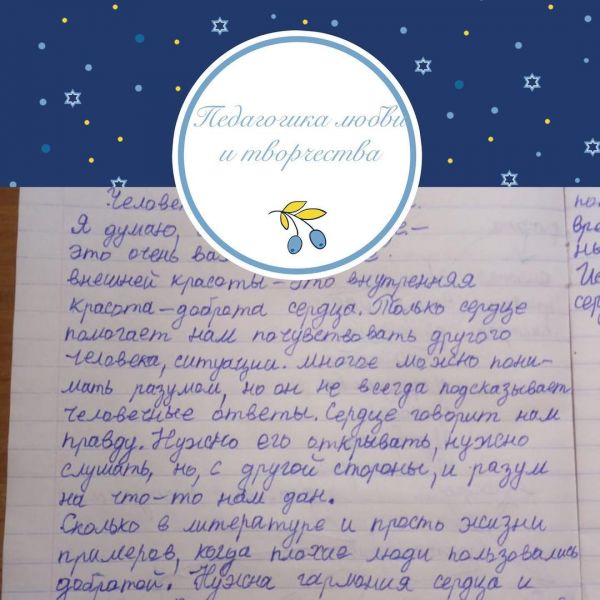 Педагогика любви
и творчества
Человек
Я думаю,
это очень
внешней красоты - это внутренняя
красота - доброта сердца. Только сердце
помогает нам почувствовать другого
человека, ситуации. Многое можно пони-
мать разумом, но он не всегда подсказывает
человечные ответы. Сердце говорит нам
правду. Нужно его открывать, нужно
слушать, но, с другой стороны, и разум
на что-то нам дан.
Сколько в литературе и просто жизни
примеров, когда плохие люди пользовались
добротой. Нужна гармония сердца и